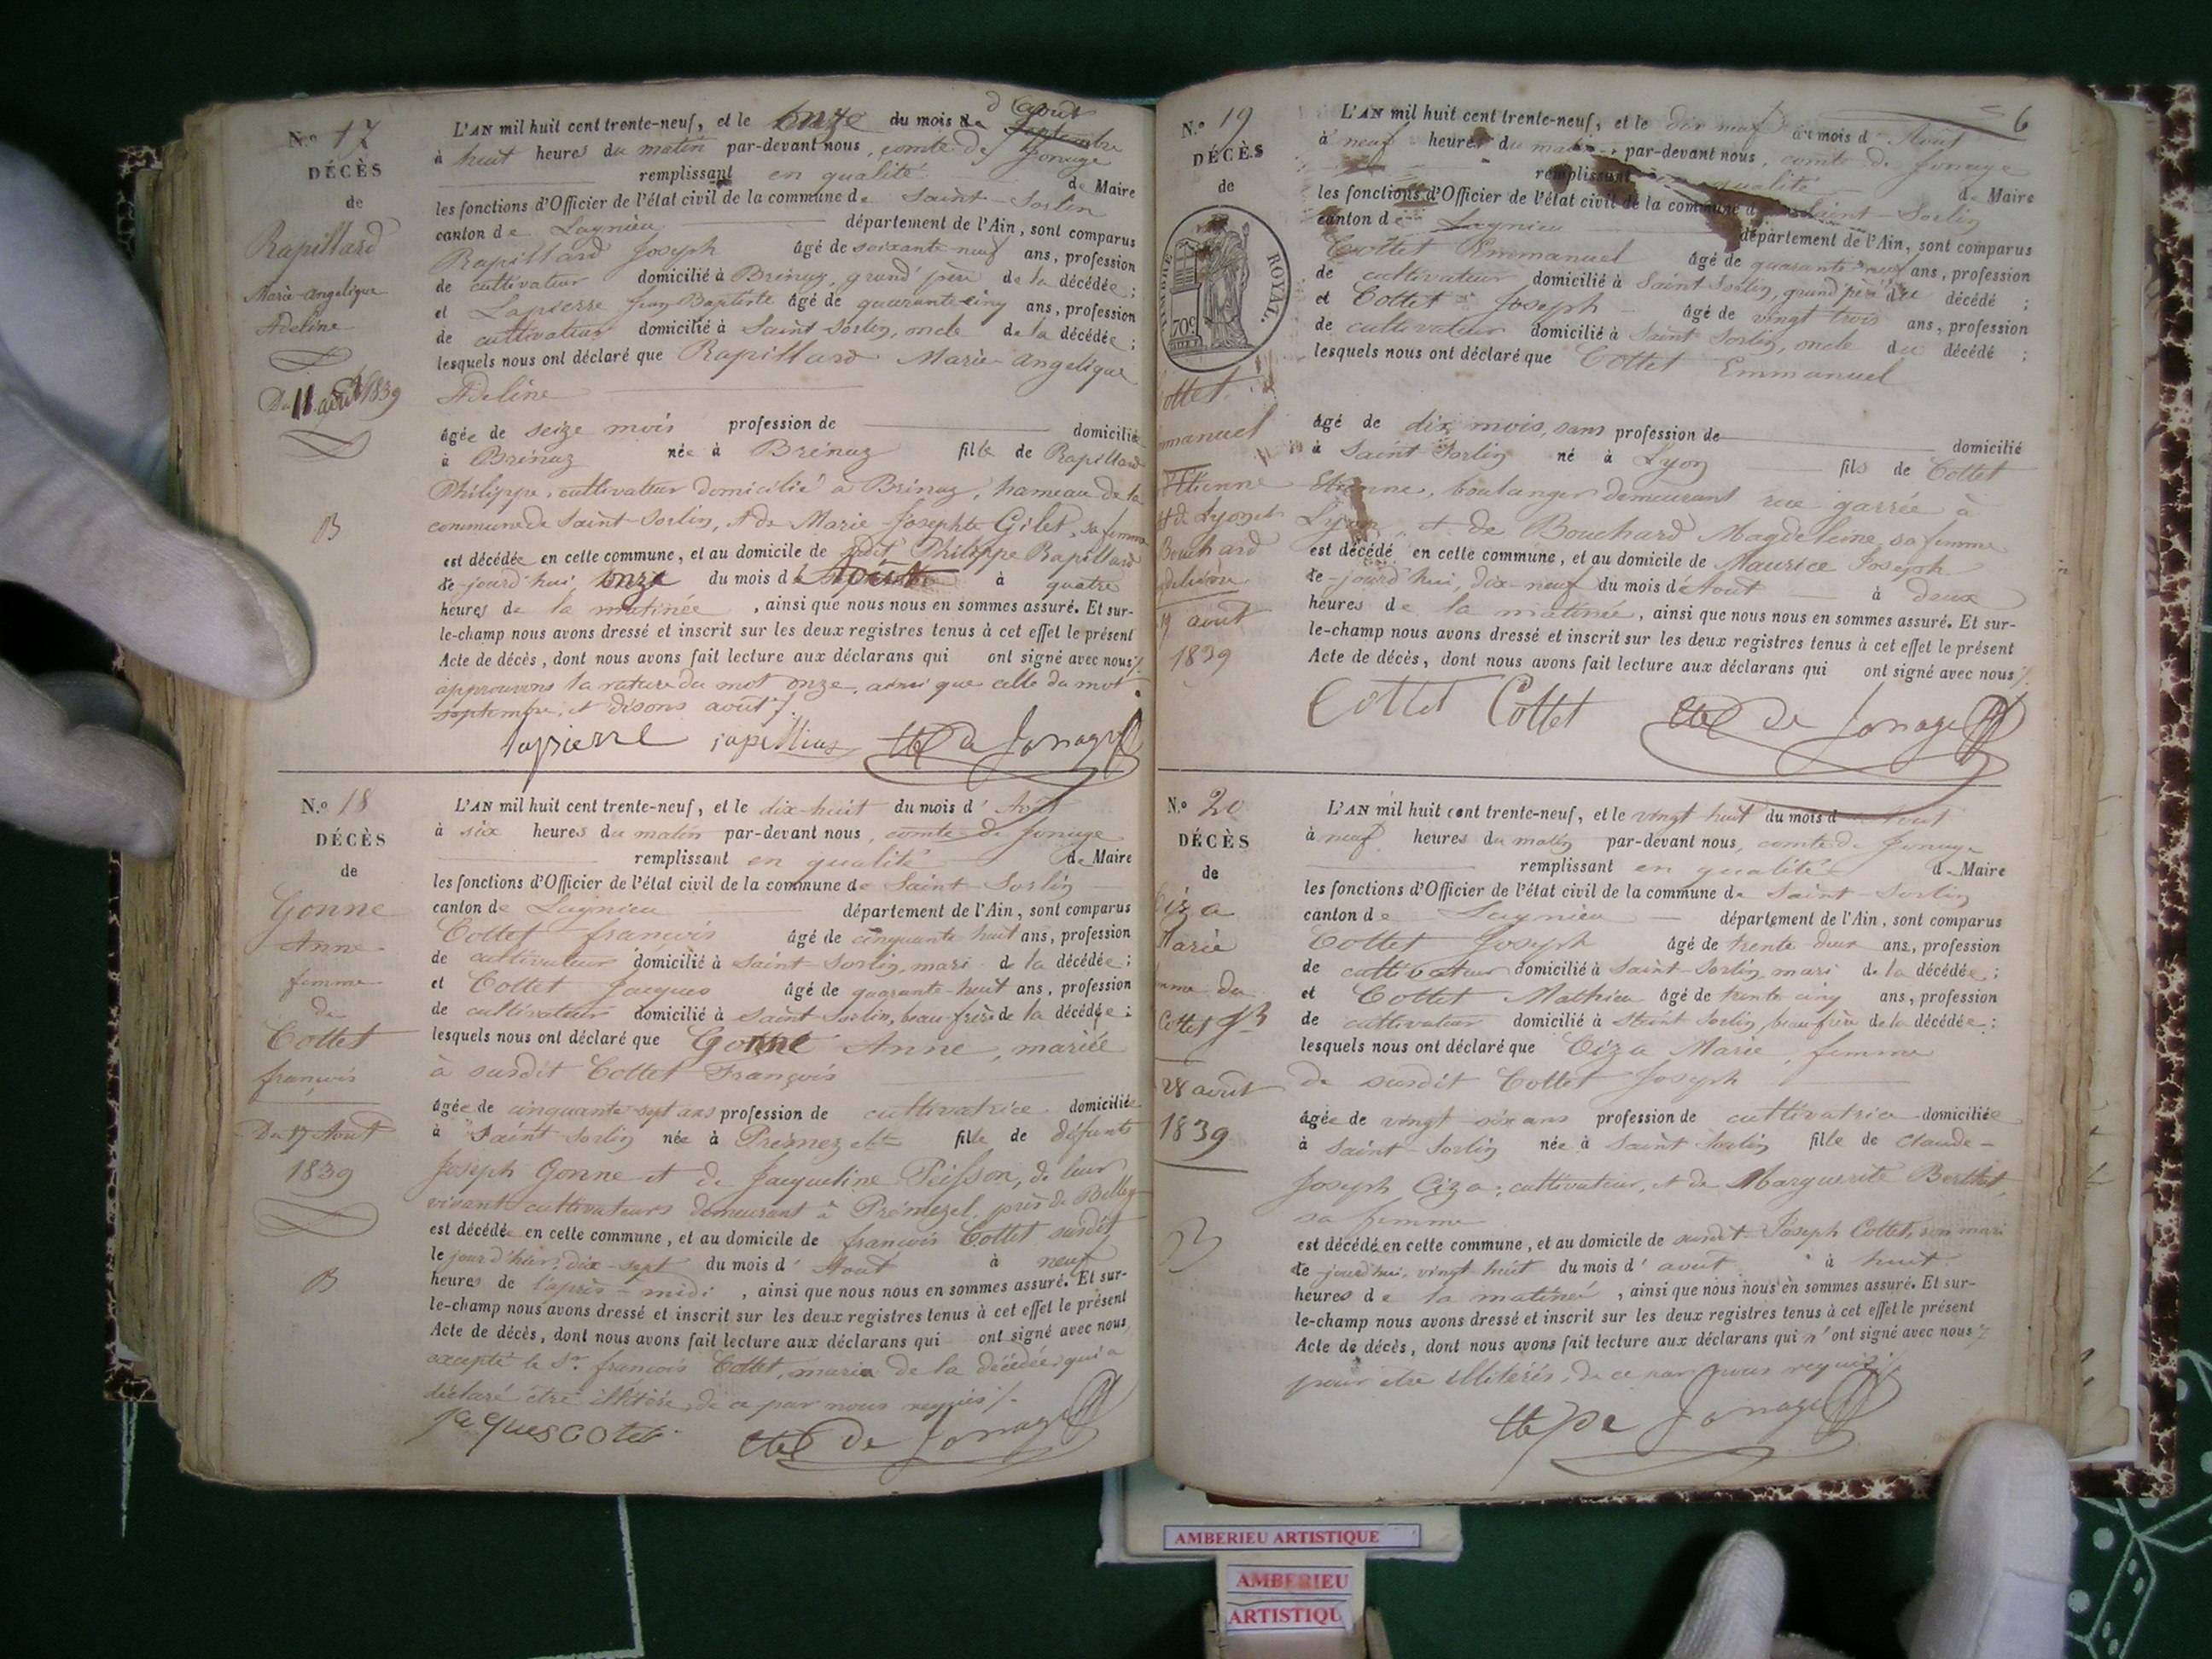 N.o 17
DÉCÈS
de
Rapillard
Marie-Angelique
Adeline
Du 11 août 1839
B
L'AN mil huit cent trente-neuf, et le onze du mois de septembre d'août
à huit heures du matin par-devant nous, comte de Jonage
remplissant en qualité de Maire
les fonctions d'Officier de l'état civil de la commune de Saint-Sorlin
canton de Lagnieu département de l'Ain, sont comparus
Rapillard Joseph âgé de soixante-neuf ans, profession
de cultivateur domicilié à Brénaz, grand'père de la décédée ;
et Lapierre Jean-Baptiste âgé de quarante-cinq ans, profession
de cultivateur domicilié à Saint Sorlin, oncle de la décédée ;
lesquels nous ont déclaré que Rapillard Marie Angelique
Adeline
âgée de seize mois profession de domiciliée
à Brénaz née à Brénaz fille de Rapillard
Philippe, cultivateur domicilié à Brénaz, hameau de la
commune de Saint-Sorlin, et de Marie-Josephte Gilet, sa femme
est décédée en cette commune, et au domicile de Philippe Rapillard
ce-jourd'hui, onze du mois d' Août à quatre
heures de la matinée, ainsi que nous nous en sommes assuré. Et sur-
le-champ nous avons dressé et inscrit sur les deux registres tenus à cet effet le présent
Acte de décès, dont nous avons fait lecture aux déclarans qui ont signé avec nous
approuvons la rature du mot onze, ainsi que celle du mot
septembre, et disons août
lapierre rapillard Cte de Jonage
N.o 18
DÉCÈS
de
Gonne
Anne
femme
de
Cottet
françois
Du 17 Août
1839
B
L'AN mil huit cent trente-neuf, et le dix-huit du mois d' Août
à six heures du matin par-devant nous, comte de Jonage
remplissant en qualité de Maire
les fonctions d'Officier de l'état civil de la commune de Saint-Sorlin
canton de Lagnieu département de l'Ain, sont comparus
Cottet françois âgé de cinquante-huit ans, profession
de cultivateur domicilié à Saint-Sorlin, mari de la décédée ;
et Cottet Jacques âgé de quarante-huit ans, profession
de cultivateur domicilié à Saint Sorlin, beau-frère de la décédée ;
lesquels nous ont déclaré que Gonne Anne, mariée
à susdit Cottet François
âgée de cinquante-sept ans profession de cultivatrice domiciliée
à Saint Sorlin née à fille de défunts
Joseph Gonne et de Jacqueline Peisson, de leur
vivant cultivateurs demeurant à Prémezel, près de Belley
est décédée en cette commune, et au domicile de françois Cottet susdit
le jour d'hier, dix-sept du mois d' Août à neuf
heures de l'après-midi, ainsi que nous nous en sommes assuré. Et sur-
le-champ nous avons dressé et inscrit sur les deux registres tenus à cet effet le présent
Acte de décès, dont nous avons fait lecture aux déclarans qui ont signé avec nous
excepté le Sr. françois Cottet, mari de la décédée, qui a
déclaré être illitéré, de ce par nous requis
jaques cotet Cte de Jonage
6
N.o 19
DÉCÈS
de
TIMBRE ROYAL.
70c
ottet
mmanuel
Etienne
et de Lyon
Bouchard
19 août
1839
L'AN mil huit cent trente-neuf, et le dix neuf du mois d' Août
à neuf heures du matin par-devant nous, comte de Jonage
remplissant en qualité de Maire
les fonctions d'Officier de l'état civil de la commune de Saint-Sorlin
canton de Lagnieu département de l'Ain, sont comparus
Cottet Emmanuel âgé de quarante-neuf ans, profession
de cultivateur domicilié à Saint Sorlin, grand père du décédé ;
et Cottet Joseph âgé de vingt trois ans, profession
de cultivateur domicilié à Saint-Sorlin, oncle du décédé ;
lesquels nous ont déclaré que Cottet Emmanuel
âgé de dix mois, sans profession de domicilié
à Saint Sorlin né à Lyon fils de Cottet
Etienne, boulanger demeurant rue garrée à
Lyon, et de Bouchard Magdeleine, sa femme
est décédé en cette commune, et au domicile de Maurice Joseph
ce-jourd'hui, dix-neuf du mois d'Août à deux
heures de la matinée, ainsi que nous nous en sommes assuré. Et sur-
le-champ nous avons dressé et inscrit sur les deux registres tenus à cet effet le présent
Acte de décès, dont nous avons fait lecture aux déclarans qui ont signé avec nous
Cottet Cottet Cte de Jonage
N.o 20
DÉCÈS
de
Ciza
Marie
femme du
Cottet Jh
28 août
1839
B
L'AN mil huit cent trente-neuf, et le vingt-huit du mois d' Août
à neuf heures du matin par-devant nous, comte de Jonage
remplissant en qualité de Maire
les fonctions d'Officier de l'état civil de la commune de Saint-Sorlin
canton de Lagnieu département de l'Ain, sont comparus
Cottet Joseph âgé de trente deux ans, profession
de cultivateur domicilié à Saint-Sorlin, mari de la décédée ;
et Cottet Mathieu âgé de trente cinq ans, profession
de cultivateur domicilié à Saint Sorlin, beau-frère de la décédée ;
lesquels nous ont déclaré que Ciza Marie, femme
de susdit Cottet Joseph
âgée de vingt-six ans profession de cultivatrice domiciliée
à Saint-Sorlin née à Saint Sorlin fille de Claude-
Joseph Ciza, cultivateur, et de Marguerite Berthet,
sa femme
est décédée en cette commune, et au domicile de susdit Joseph Cottet, son mari
ce jourd'hui, vingt-huit du mois d' août à huit
heures de la matinée, ainsi que nous nous en sommes assuré. Et sur-
le-champ nous avons dressé et inscrit sur les deux registres tenus à cet effet le présent
Acte de décès, dont nous avons fait lecture aux déclarans qui n'ont signé avec nous
pour être illitérés, de ce par nous requis
Cte de Jonage
AMBERIEU ARTISTIQUE
AMBERIEU
ARTISTIQU